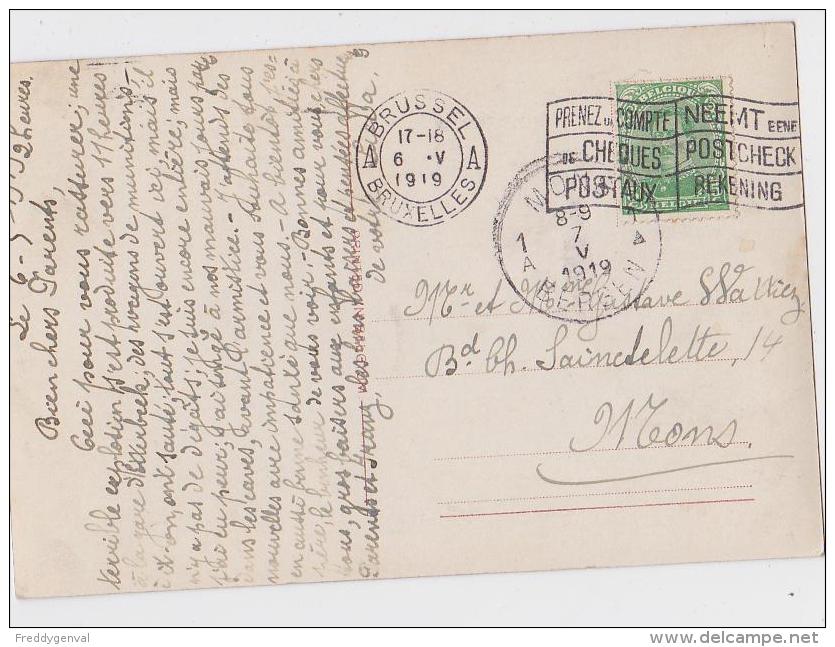 Le 6-5-19 2 heures.
Bien chers Parents,
Ceci pour vous rassurer; une
terrible explosion s'est produite vers 11 heures
à la gare d'Etterbeek, des wagons de munitions
ont sauté; tout s'est ouvert ici, mais il
n'y a pas de dégâts; je suis encore entière, mais
j'ai eu peur; j'ai songé à nos mauvais jours
dans les caves, avant l'armistice. - J'attends des
nouvelles avec impatience et vous souhaite tous
en aussi bonne santé que nous. - A bientôt
le bonheur de vous voir. - Bonnes amitiés à
tous, gros baisers aux enfants et pour vous, chers
Parents et Franz, les plus
de votre
BRUSSEL
17-18
6 · V
1919
A A
BRUXELLES
PRENEZ UN COMPTE
DE CHEQUES
POSTAUX
NEEMT EENE
POSTCHECK
REKENING
BELGIQUE
BELGIË
MONS
8-9
7
V
1919
1 A
1 A
BERGEN
Mr et Mme Gustave Wattiez
Bd Ch. Sainctelette, 14
Mons.
Freddygenval
delcampe.net